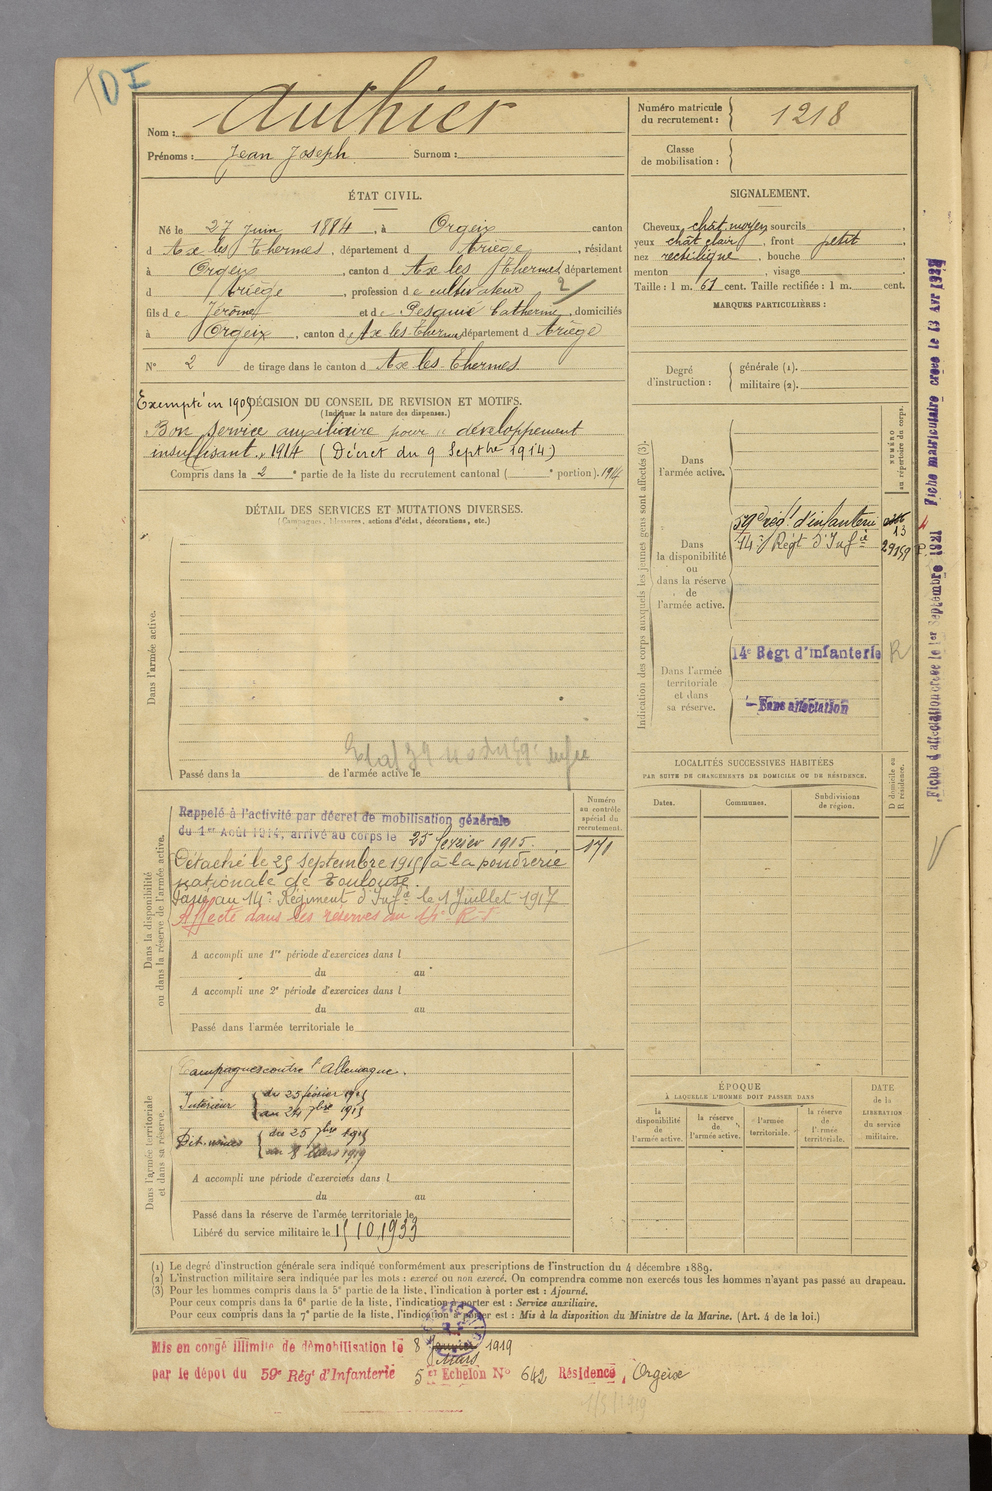 DI
Nom : Authier
Prénoms : Jean Joseph Surnom :
Numéro matricule du recrutement : 1218
Classe de mobilisation :
ÉTAT CIVIL.
Né le 27 juin 1884, à Orgeix canton
d Ax les Thermes, département d Ariège, résidant
à Orgeix, canton d Ax les Thermes département
d Ariège, profession de cultivateur 2
fils de Jérôme et de Pesqué Catherine, domiciliés
à Orgeix, canton d Ax-les-Thermes département d Ariège
N° 2 de tirage dans le canton d Ax les Thermes
SIGNALEMENT.
Cheveux chât moyen sourcils
yeux chât clair, front petit
nez rectiligne, bouche
menton , visage
Taille : 1 m. 61 cent. Taille rectifiée : 1 m. cent.
MARQUES PARTICULIÈRES :
Degré d'instruction : générale (1).
militaire (2).
Exempté en 1905
DÉCISION DU CONSEIL DE REVISION ET MOTIFS.
(Indiquer la nature des dispenses.)
Bon service auxiliaire pour " développement
insuffisant " 1914 (Décret du 9 Septbre 1914)
Compris dans la 2e partie de la liste du recrutement cantonal ( e portion). 1914
DÉTAIL DES SERVICES ET MUTATIONS DIVERSES.
(Campagnes, blessures, actions d'éclat, décorations, etc.)
Dans l'armée active.
Passé dans la de l'armée active le
Indication des corps auxquels les jeunes gens sont affectés (3).
NUMÉRO au répertoire du corps.
Dans l'armée active.
Dans la disponibilité ou dans la réserve de l'armée active.
59e rég.t d'infanterie
14e Régt d'Infie
13
Dans l'armée territoriale et dans sa réserve.
14e Régt d'infanterie R
Sans affectation
Fiche matriculaire créée le 13 Avr 1928
Fiche d'affectation créée le 1er Septembre 1921
LOCALITÉS SUCCESSIVES HABITÉES
PAR SUITE DE CHANGEMENTS DE DOMICILE OU DE RÉSIDENCE.
Dates. Communes. Subdivisions de région.
D domicile ou R résidence.
Dans la disponibilité ou dans la réserve de l'armée active.
Numéro au contrôle spécial du recrutement.
171
Rappelé à l'activité par décret de mobilisation générale
du 1er Août 1914, arrivé au corps le 25 février 1915.
Détaché le 25 Septembre 1915 à la poudrerie
nationale de Toulouse.
Passé au 14e Régiment d'Infie le 1 Juillet 1917
Affecté dans les réserves au 14e R.I
A accompli une 1re période d'exercices dans l
du au
A accompli une 2e période d'exercices dans l
du au
Passé dans l'armée territoriale le
Dans l'armée territoriale et dans sa réserve.
Campagnes contre l'Allemagne.
Intérieur du 25 février 1915
au 24 7bre 1915
du 25 7bre 1915
au 8 Mars 1919
A accompli une période d'exercices dans l
du au
Passé dans la réserve de l'armée territoriale le
Libéré du service militaire le 15 10 1933
ÉPOQUE
À LAQUELLE L'HOMME DOIT PASSER DANS
la disponibilité de l'armée active.
la réserve de l'armée active.
l'armée territoriale.
la réserve de l'armée territoriale.
DATE de la LIBÉRATION du service militaire.
(1) Le degré d'instruction générale sera indiqué conformément aux prescriptions de l'instruction du 4 décembre 1889.
(2) L'instruction militaire sera indiquée par les mots : exercé ou non exercé. On comprendra comme non exercés tous les hommes n'ayant pas passé au drapeau.
(3) Pour les hommes compris dans la 5e partie de la liste, l'indication à porter est : Ajourné.
Pour ceux compris dans la 6e partie de la liste, l'indication à porter est : Service auxiliaire.
Pour ceux compris dans la 7e partie de la liste, l'indication à porter est : Mis à la disposition du Ministre de la Marine. (Art. 4 de la loi.)
Mis en congé illimité de démobilisation le 8 Janvier 1919
Mars
par le dépôt du 59e Régt d'Infanterie 5e Echelon N° 642 Résidence, Orgeix